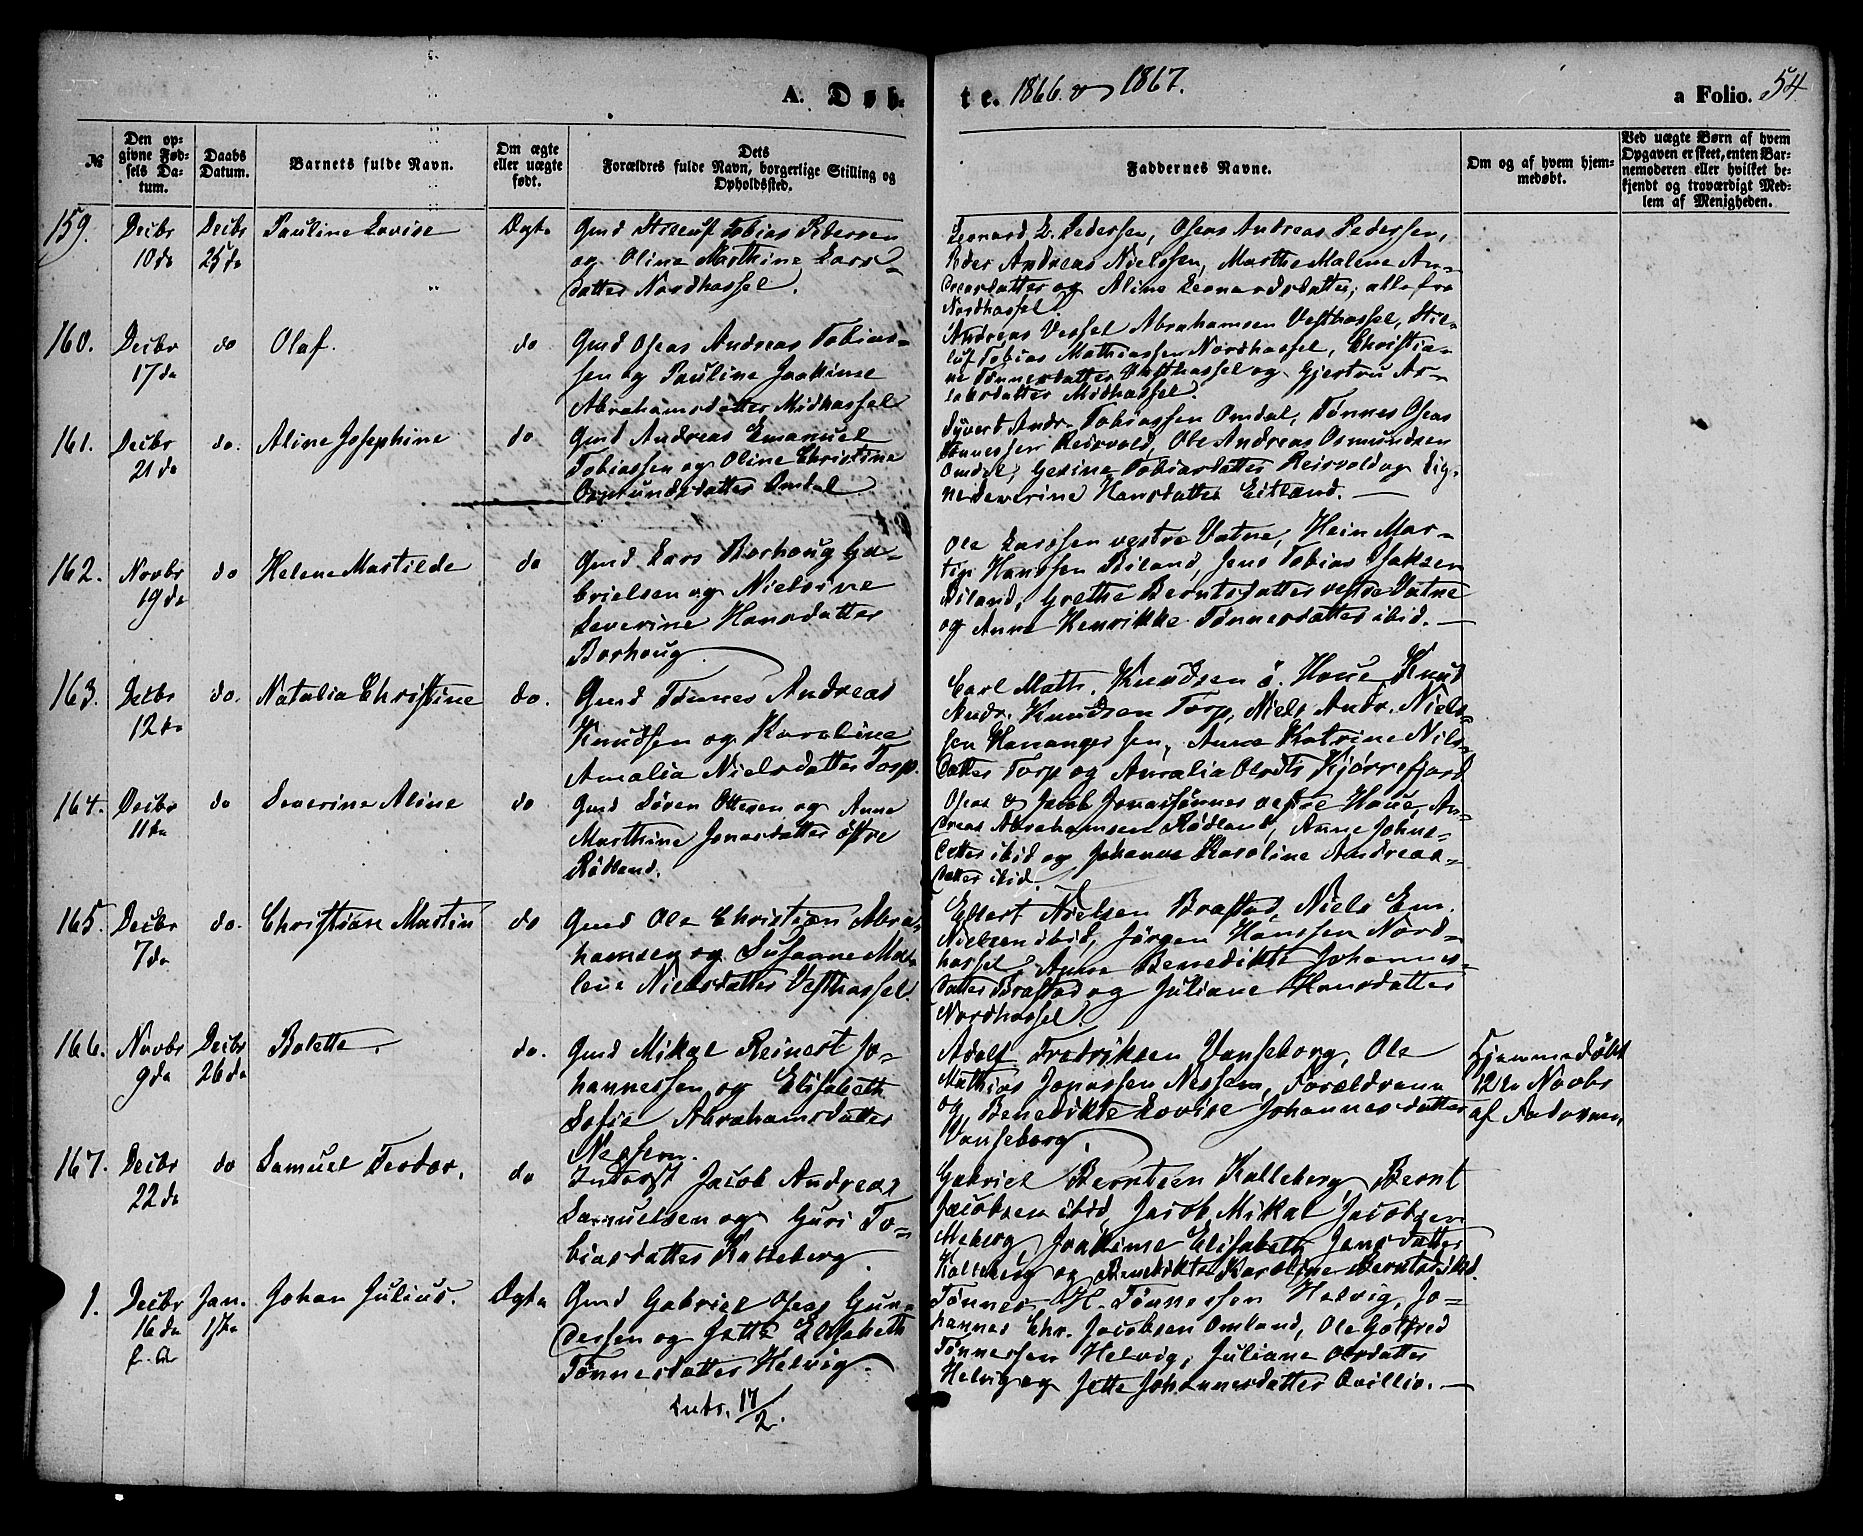 A. Døb-
te. 1866 og 1867.
a Folio. 54
№
Den op-
givne Fød-
sels Da-
tum.
Daabs
Datum.
Barnets fulde Navn.
Om ægte
eller uægte
født.
Dets
Forældres fulde Navn, borgerlige Stilling og
Opholdssted.
Faddernes Navne.
Om og af hvem hjem-
medøbt.
Ved uægte Børn af hvem
Opgaven er skeet, enten Bar-
nemoderen eller hvilket be-
kjendt og troværdigt Med-
lem af Menigheden.
159.
Decbr
10de
Decbr
25de
Pauline Lovise
Ægte
Gmd Tobias Pedersen
og Oline Marthine Lars-
datter Nordhassel.
Leonard L. Pedersen, Oseas Andreas Pedersen,
Peder Andreas Nielssen, Marthe Malene An-
dreasdatter og Aline Leonardsdatter, alle fra
Nordhassel.
160.
Decbr
17de
do
Olaf.
do
Gmd Oseas Andreas Tobias-
sen og Pauline Joakime
Abrahamsdatter Midhassel
Andreas Vessel Abrahamsen Vesthassel, Stil-
luf Tobias Mathiassen Nordhassel, Christia-
ne Tønnesdatter Vesthassel og Gjertru As-
laksdatter Midhassel.
161.
Decbr
21de
do.
Aline Josephine
do
Gmd Andreas Emanuel
Tobiassen og Oline Christine
Osmundsdatter Omdal
Syvert Andr. Tobiassen Omdal, Tønnes Oseas
Hansen Reisvold, Ole Andreas Osmundsen
Omdal, Gesine Tobiasdatter Reisvold og Sig-
ne Severine Hansdatter Eitland.
162.
Novbr
19de
do
Helene Martilde
do
Gmd Lars Borhoug Ga-
brielsen og Nielsine
Severine Hansdatter
Borhoug.
Ole Larssen vestre Vatne, Hein Mar-
tin Hanssen Biland, Jens Tobias Isaksen
Biland, Grethe Berntsdatter vestre Vatne
og Anne Henrikke Tønnesdatter ibid.
163.
Decbr
12te
do.
Natalia Christine
do.
Gmd Tønnes Andreas
Knudsen og Karoline
Amalia Nielsdatter Torp.
Carl Math. Knudsen ø. Haue, Knud
Andr. Knudsen Torp, Niels Andr. Niels-
sen Hananger, Anne Katrine Niels-
datter Torp og Auralia Olsdtr Kjørrefjord
164.
Decbr
11te
do
Severine Aline
do
Gmd Søren Ottesen og Anne
Marthine Jonasdatter østre
Rødland.
Oseas & Jacob Jonassønner vestre Haue, An-
dreas Abrahamsen Rødland, Anne Johns-
datter ibid og Johanne Karoline Andreas-
datter ibid.
165.
Decbr
7de
do.
Christian Martin
do
Gmd Ole Christian Abra-
hamsen og Susanne Ma-
lene Nielsdatter Vesthassel.
Eilert Nielsen Brastad, Niels Em.
Nielsen ibid, Jørgen Hanssen Nord-
hassel, Anne Benedikte Johannes-
datter Brastad og Juliane Hansdatter
Nordhassel.
166.
Novbr
9de
Decbr
26de
Bolette.
do.
Gmd Mikal Reinert Jo-
hannessen og Elisabeth
Sofie Abrahamsdatter
Nessem.
Adolf Fredriksen Vanseborg, Ole
Mathias Jonassen Nessem, Forældrene
og Benedikte Lovise Johannesdatter
Vanseborg.
Hjemmedøbt
12te Novbr
af Faderen.
167.
Decbr
22de
do
Samuel Teodor.
do
Inderst Jacob Andreas
Samuelsen og Guri To-
biasdatter Kalleberg.
Gabriel Berntsen Kalleberg, Bernt
Jacobsen ibid, Jacob Mikal Jacobsen
Meberg, Joakime Elisabeth Jensdatter
Kalleberg og Benedikte Karoline Berntsd. ibid.
1.
Decbr
16de
f. A
Jan.
1ste
Johan Julius.
Ægte
Gmd Gabriel Oseas Gun-
dersen og Jette Elisabeth
Tønnesdatter Helvig.
Intr. 17/2.
Tønnes H. Tønnessen Helvig, Jo-
hannes Chr. Jacobsen Omland, Ole Gotfred
Tønnessen Helvig, Juliane Olsdatter
Helvig og Jette Johannesdatter Qvillio.